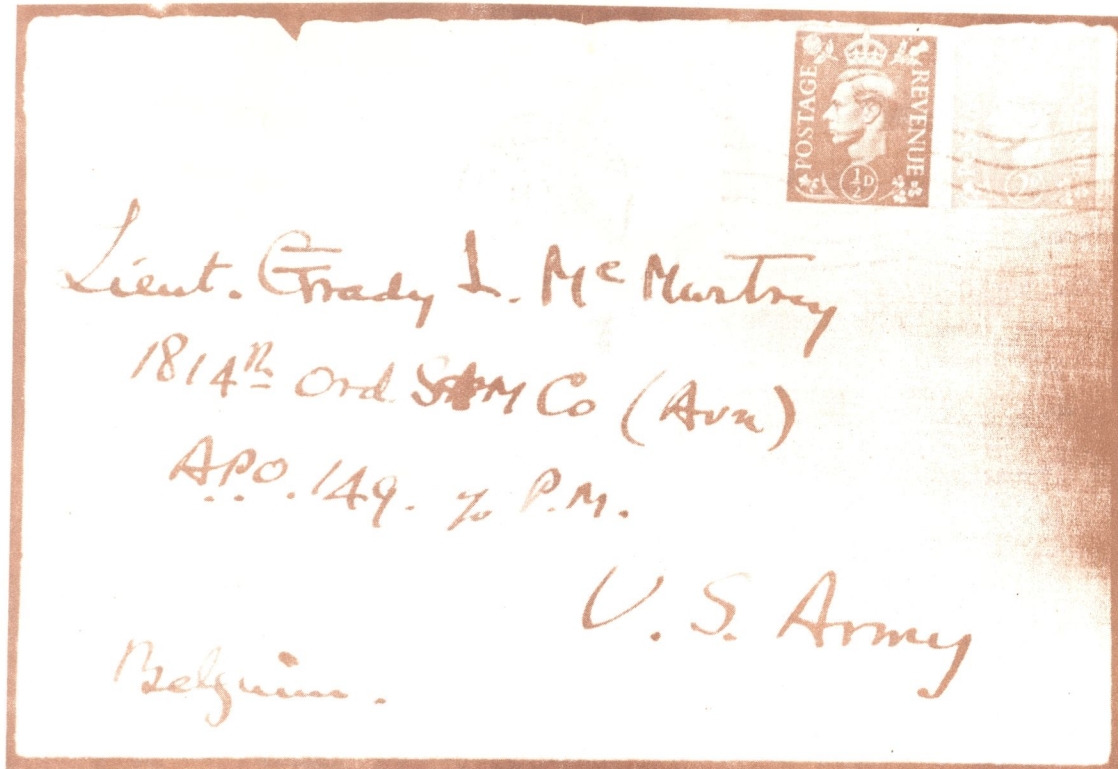 POSTAGE REVENUE
½D
Lieut. Grady L. McMurtrey
1814th Ord. S&M Co (Avn)
A.P.O. 149. c/o P.M.
U. S. Army
Belgium.